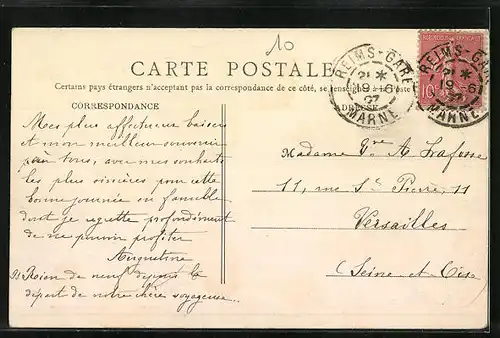 10
CARTE POSTALE
Certains pays étrangers n'acceptant pas la correspondance de ce côté, se renseigner à la Poste
CORRESPONDANCE
ADRESSE
REIMS-GARE
MARNE
REIMS-GARE
MARNE
Mes plus affectueux baisers
et mon meilleur souvenir
pour tous, avec mes souhaits
les plus sincères pour cette
bonne journée en famille
dont je regrette profondément
de ne pouvoir profiter
Augustine
Ps Reien de neuf depuis le
départ de notre chère voyageuse..
Madame Vve A. Lafosse
11, rue St Pierre, 11
Versailles
(Seine et Oise